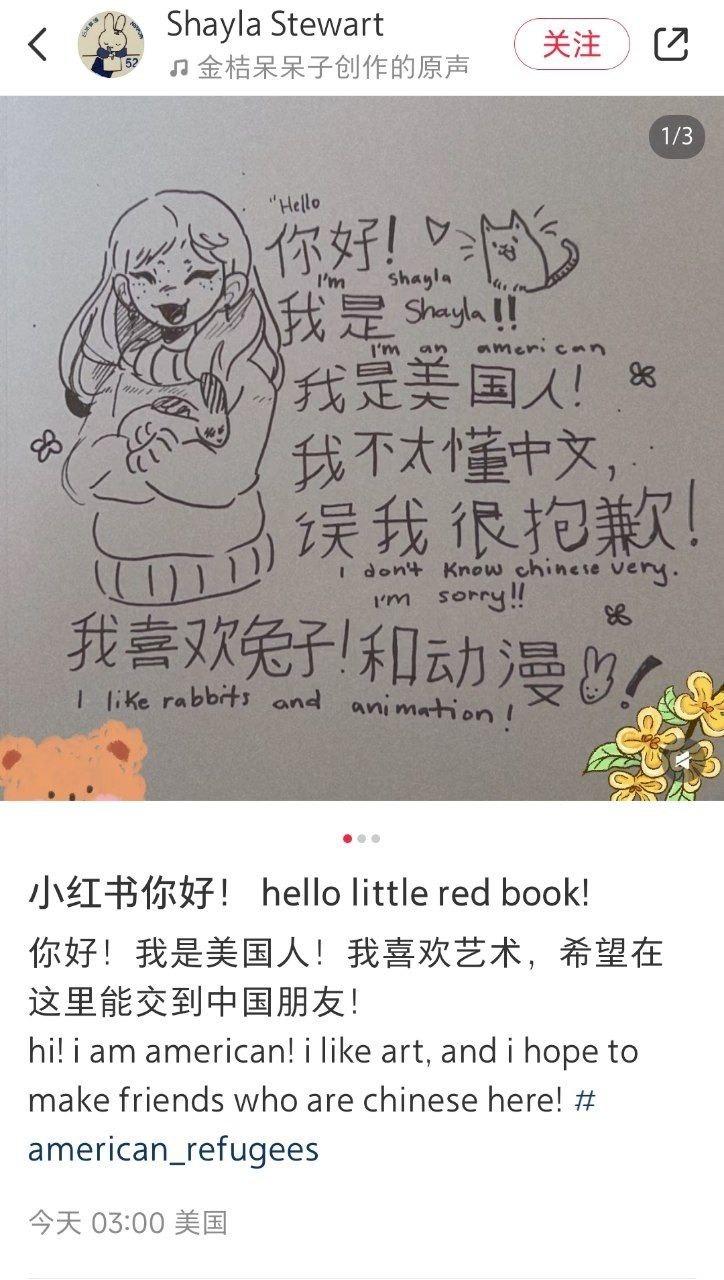 Shayla Stewart
金桔呆呆子创作的原声
关注
1/3
"Hello
你好!
I'm shayla
我是 Shayla!!
I'm an american
我是美国人!
我不太懂中文,
误我很抱歉!
I don't know chinese very.
I'm sorry!!
我喜欢兔子!和动漫!
I like rabbits and animation!
小红书你好! hello little red book!
你好!我是美国人!我喜欢艺术,希望在
这里能交到中国朋友!
hi! i am american! i like art, and i hope to
make friends who are chinese here! #
american_refugees
今天 03:00 美国